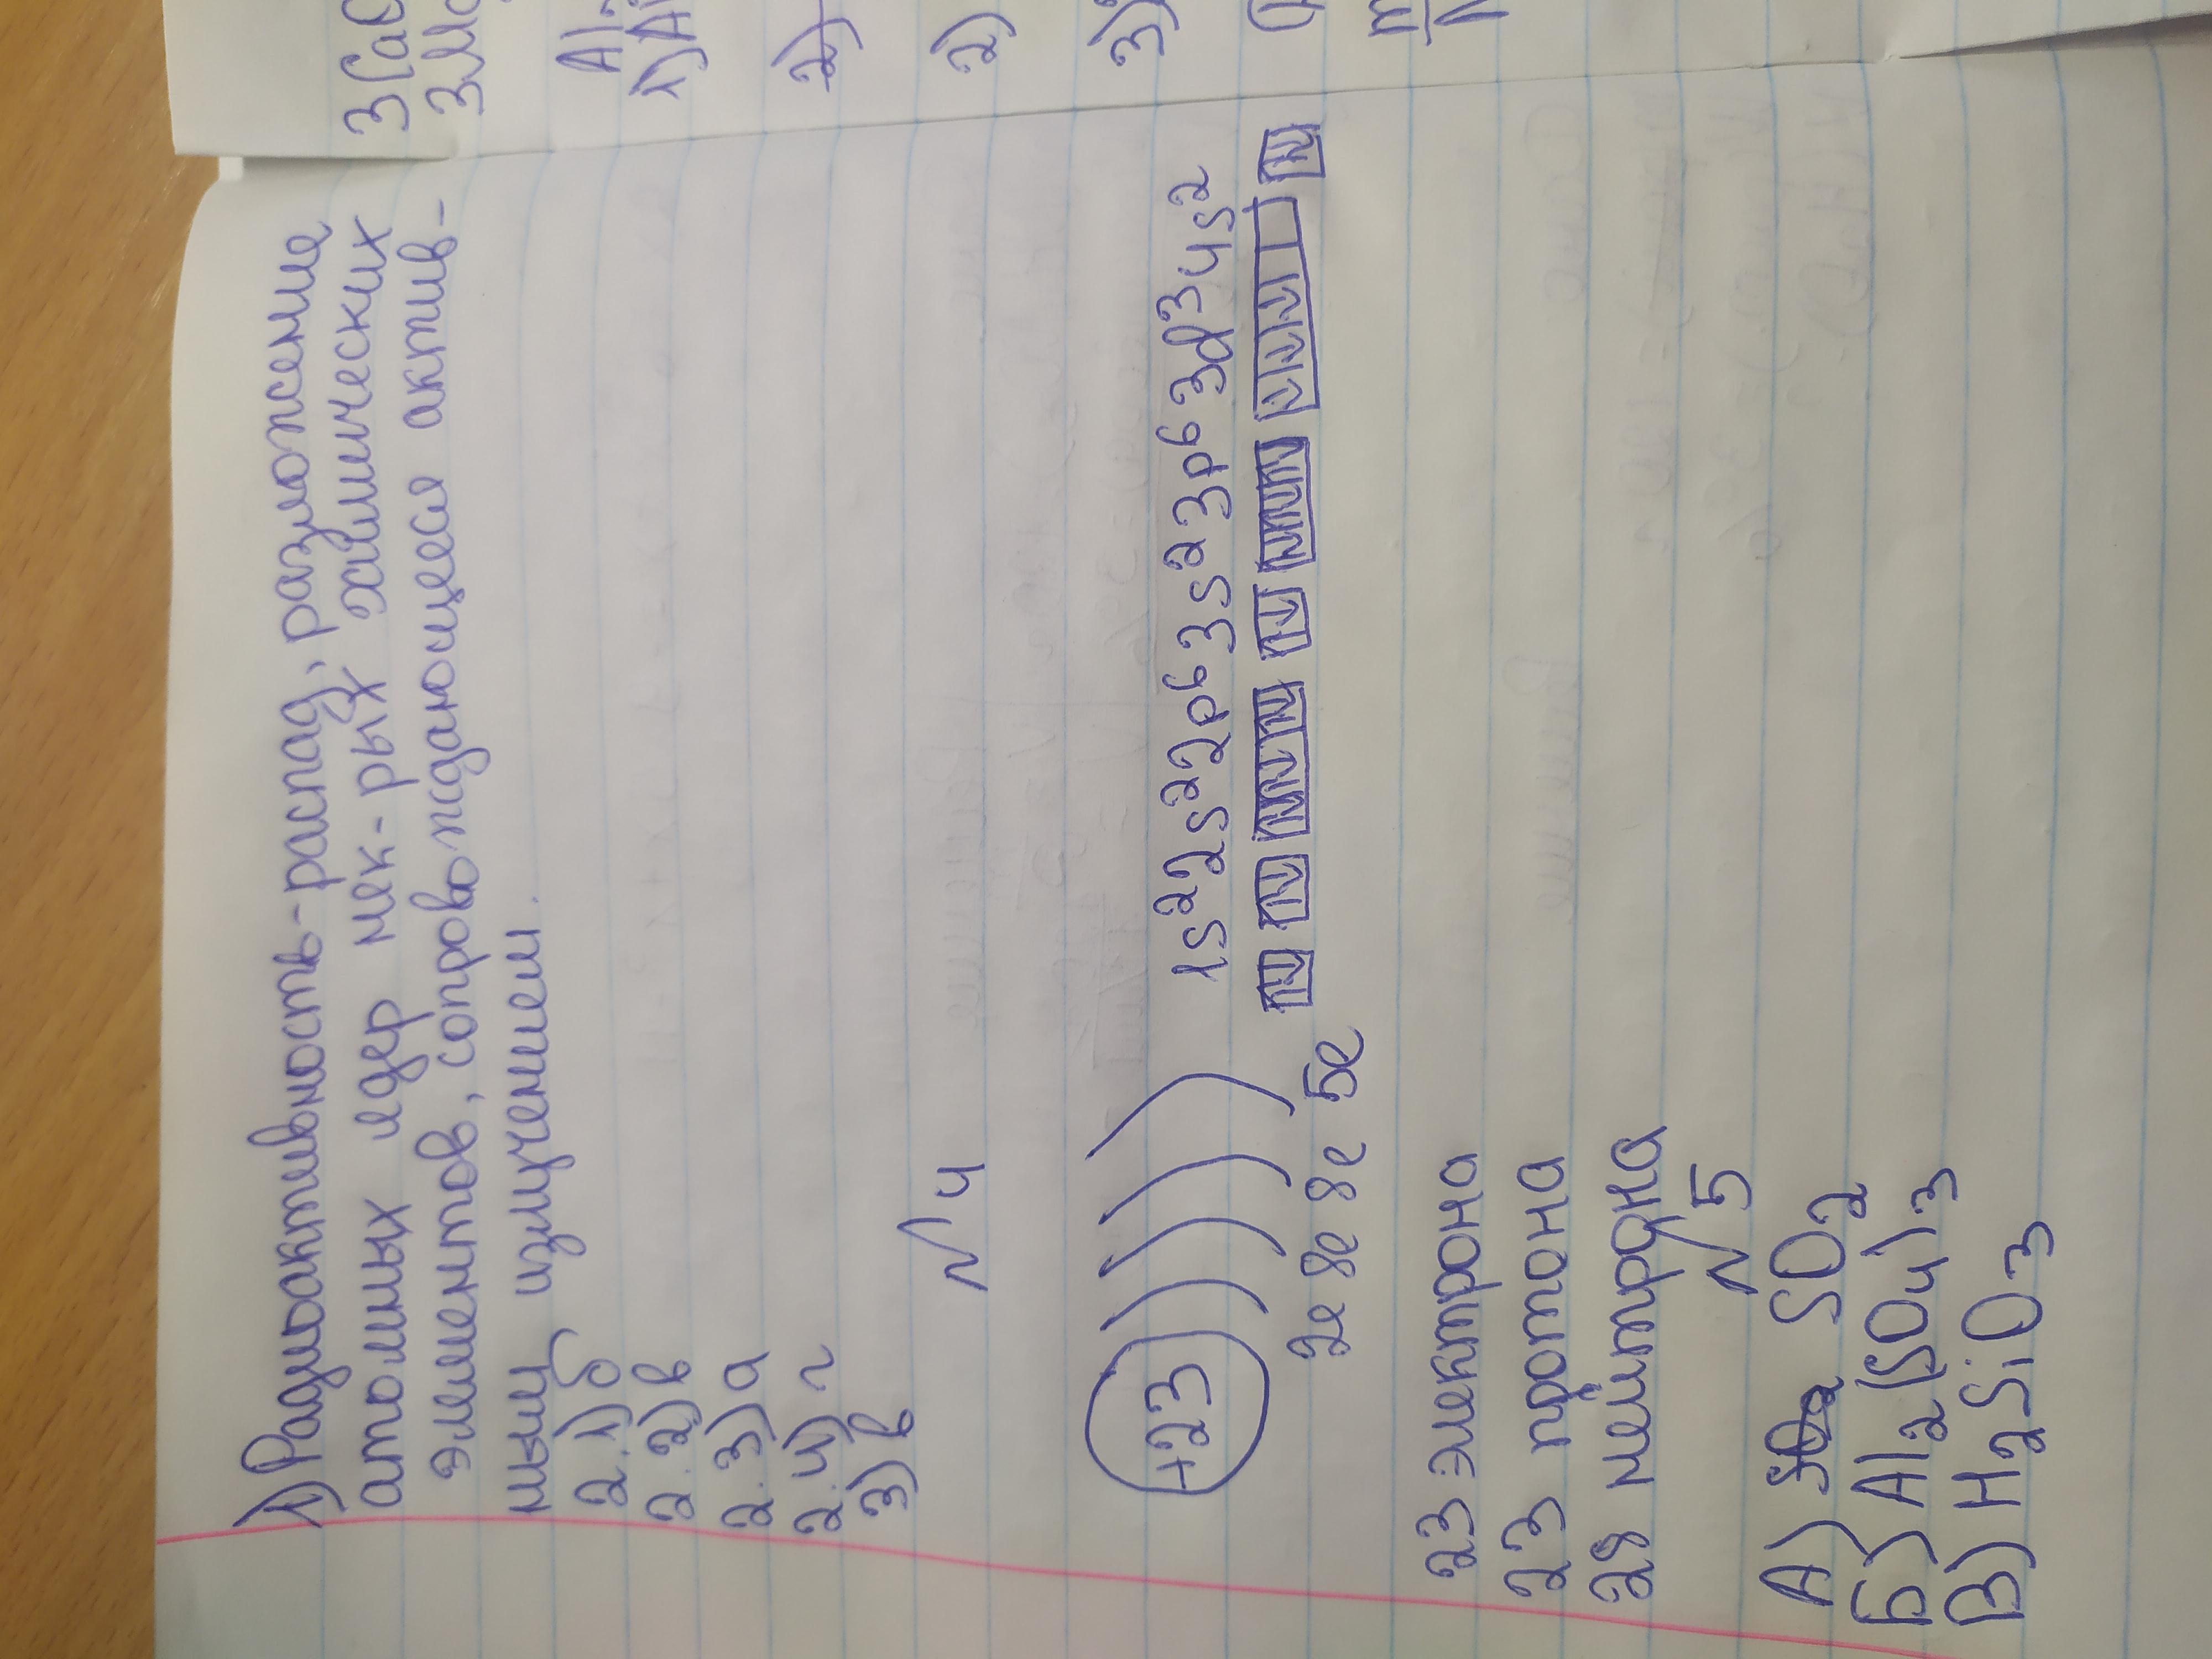 1) Радиоактивность-распад, разложение
атомных ядер нек-рых химических
элементов, сопровождающееся актив-
ным излучением.
2.1) б
2.2) в
2.3) а
2.4) г
3) в
№4
+23 ) ) ) ) 1s²2s²2p⁶3s²3p⁶3d³4s²
2e 8e 8e 5e
23 электрона
23 протона
28 нейтрона
№5
А) SO₂
Б) Al₂(SO₄)₃
В) H₂SiO₃
3 Ca
3 M
Al
1) A
2)
2)
3)